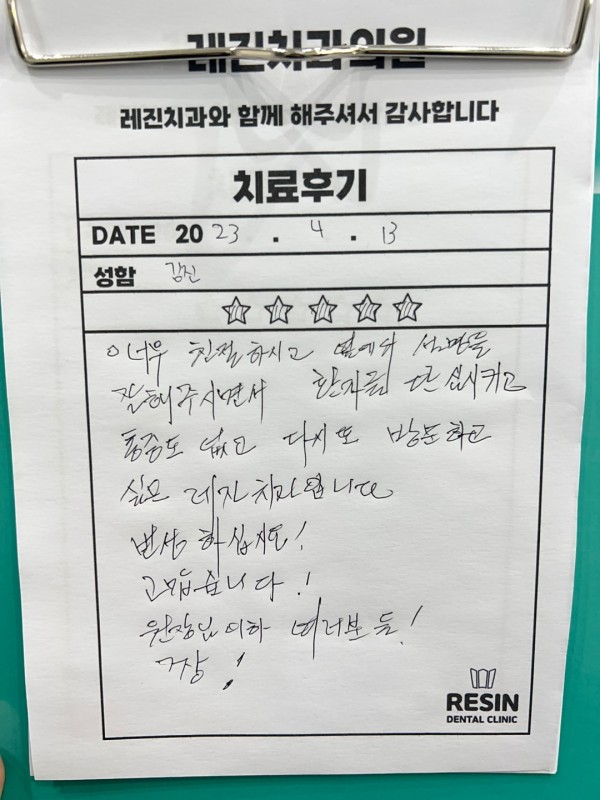 레진치과의원
레진치과와 함께 해주셔서 감사합니다
치료후기
DATE 2023 . 4 . 13
성함 김진
너무 친절하시고 옆에서 설명을
잘해주시면서 환자를 안심시키고
통증도 없고 다시 또 방문하고
싶은 레진치과입니다
번성하십시요!
고맙습니다!
원장님이하 여러분들!
RESIN
DENTAL CLINIC